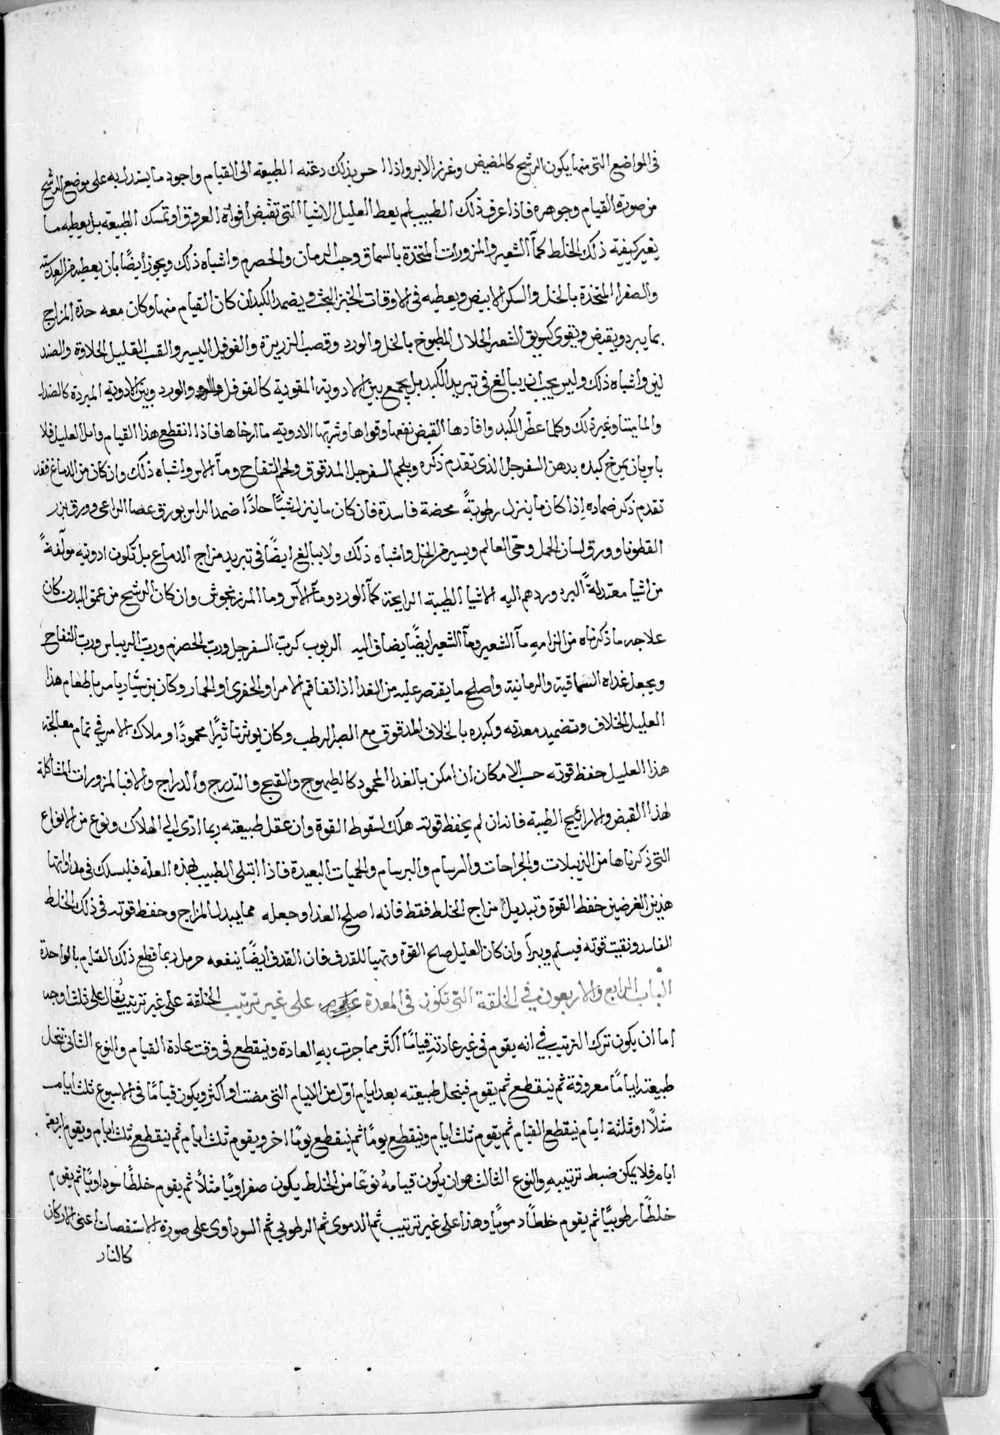 في المواضع التي منها يكون الرشح كالمضيض وغرز الابر واذا احس بذلك دعته الطبيعة الى القيام واجود ما يستدل به على موضع الرشح
من صورة القيام وجوهره فاذا عرف ذلك الطبيب لم يعط العليل الاشيا التي تقبض افواه العروق او تمسك الطبيعة بل يعطيه ما
يغير كيفية ذلك الخلط كمآ الشعير والمزورات المتخذة بالسماق وحب الرمان والحصرم واشباه ذلك ويجوز ايضًا بان يعطيه من العدسية
والصفرا المتخذة بالخل والسكر الابيض ويعطيه في الاوقات الخبز البحت ويضمد الكبد ان كان القيام منها وكان معه حدة المزاج
بما يبرد ويقبض ويقوي كسويق الشعير الحلال المطبوخ بالخل والورد وقصب الزريرة والفوفل اليسير والقسب القليل الحلاوة والصند
لين واشباه ذلك وليس يجب ان يبالغ في تبريد الكبد بل يجمع بين الادوية المقوية كالفوفل والورد وبين الادوية المبردة كالصندل
والماميثا وغير ذلك وكلما عطّر الكبد وافادها القبض نفعها وقواها وشر بها الادوية ما ارخاها فاذا انقطع هذا القيام وابل العليل فلا
باس بان يمرخ كبده بدهن السفرجل الذي تقدم ذكره وبلحم السفرجل المدقوق ولحم التفاح ومآ الاس واشباه ذلك وان كان من الدماغ فقد
تقدم ذكر ضماده اذا كان ما ينزل رطوبةً محضة فاسدة فان كان ما ينزل شيئًا حادًا ضمد الراس بورق عصا الراعي وورق بزر
القطونا وورق لسان الحمل وحي العالم ويسير من الخل واشباه ذلك ولا يبالغ ايضًا في تبريد مزاج الدماغ بل تكون ادوية مولّفةً
من اشيا معتدلة البرد وردهم اليه الاشيا الطيبة الرايحة كمآ الورد ومآ الآس وما المرزنجوش وان كان الرشح من عمق البدن كان
علاجه ما ذكرناه من الزامه مآ الشعير ومآ الشعير ايضًا يضاف اليه الربوب كرب السفرجل ورب الحصرم ورب الريباس ورب التفاح
ويجعل غذاه السماقية والرمانية واصلح ما يقتصر عليه من الغذا اذا تفاقم الامر او الحفري او الخمار وكان بن سيار يامر باطعام هذا
العليل الخلاف وتضميد معدته وكبده بالخلاف المدقوق مع الصبر الرطب وكان يوثر تاثيرًا محمودًا وملاك الامر في تمام معالجة
هذا العليل حفظ قوته حسب الامكان ان امكن بالغذا المحمود كالطيهوج والقبج والتدرج والدراج والا فبالمزورات المشاكلة
لهذا القبض والارائيح الطيبة فانه ان لم يحفظ قوته هلك لسقوط القوة وان عقل طبيعته ربما ادى الى الهلاك ونوع من الانواع
التي ذكرناها من الذبيلات والجراحات والسرسام والبرسام والحميات البعيدة فاذا ابتلي الطبيب بهذه العلة فليسلك في مداواتها
هذين الغرضين حفظ القوة وتبديل مزاج الخلط فقط فانه اصلح الغذا وجعله مما يبدل المزاج وحفظ قوته في ذلك الخلط
الفاسد ونقيت قوته فيسلم ويبرأ وان كان العليل صالح القوة وتهيا للقذف فان القذف ايضًا ينفعه حرمل ربما قطع ذلك القيام بالواحدة
الباب الرابع والاربعون في الخلفة التي تكون في المعدة على غير ترتيب الخلفة على غير ترتيب يقال على ثلث اوجه
اما ان يكون ترك الترتيب في انه يقوم في غير عادته قيامًا اكثر مما جرت به العادة وينقطع في وقت عادة القيام والنوع الثاني تنحل
طبيعته ايامًا معروفة ثم ينقطع ثم يقوم فينحل طبيعته بعد ايام اول من الايام التي مضت او اكثر ويكون قيامًا في الاسبوع ثلث ايام
مثلًا او ثلثة ايام ينقطع القيام ثم يقوم ثلث ايام وينقطع يومًا ثم ينقطع يومًا اخر ويقوم ثلث ايام ثم ينقطع ثلث ايام ويقوم اربعة
ايام فلا يمكن ضبط ترتيبه والنوع الثالث هو ان يكون قيامه نوعًا من الخلط يكون صفراويًا مثلًا ثم يقوم خلطًا سوداويًا ثم يقوم
خلطًا رطوبيًا ثم يقوم خلطًا دمويًا وهذا على غير ترتيب ثم الدموي ثم الرطوبي ثم السوداوي على صورة الاستقصات اعني الاركان
كالنار